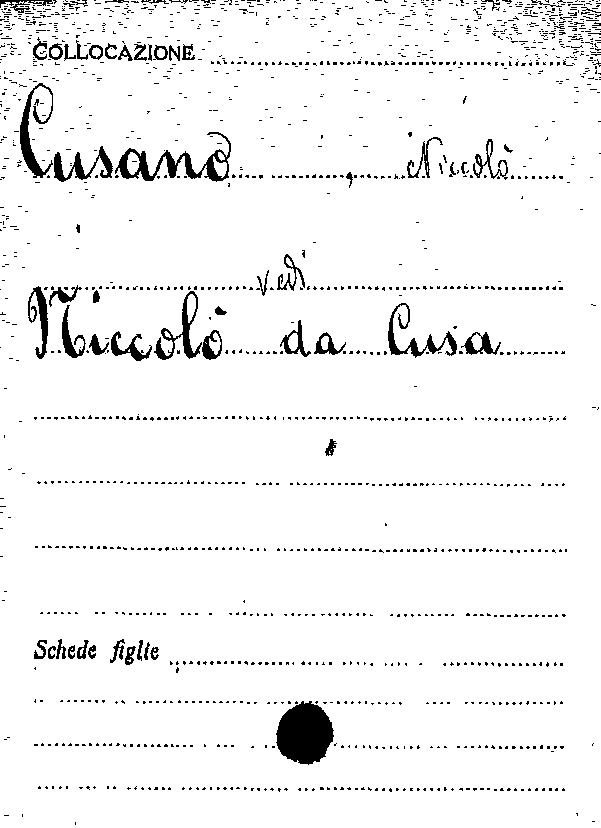 COLLOCAZIONE
Cusano, Niccolò
vedi
Niccolò da Cusa
Schede figlie